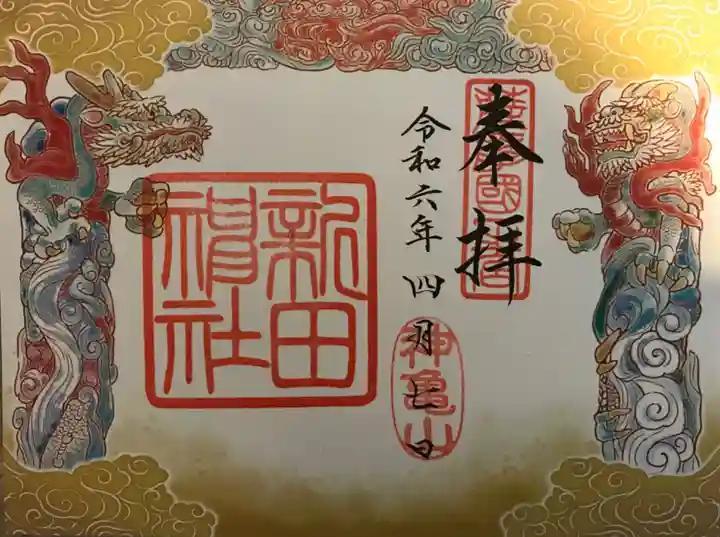 奉拝
令和六年四月七日
神亀山
新田
神社